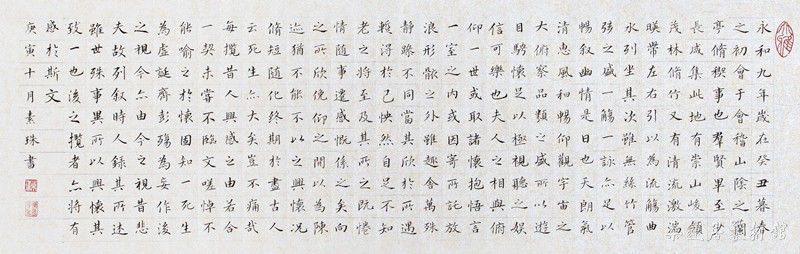 永和九年歲在癸丑暮春
之初會于會稽山陰之蘭
亭脩稧事也群賢畢至少
長咸集此地有崇山峻領
茂林脩竹又有清流激湍
暎帶左右引以為流觴曲
水列坐其次雖無絲竹管
弦之盛一觴一詠亦足以
暢叙幽情是日也天朗氣
清惠風和暢仰觀宇宙之
大俯察品類之盛所以遊
目騁懷足以極視聽之娛
信可樂也夫人之相與俯
仰一世或取諸懷抱悟言
一室之内或因寄所託放
浪形骸之外雖趣舍萬殊
静躁不同當其欣於所遇
蹔得於己怏然自足不知
老之將至及其所之既惓
情隨事遷感慨係之矣向
之所欣俛仰之間以為陳
迹猶不能不以之興懷況
脩短隨化終期於盡古人
云死生亦大矣豈不痛哉
每攬昔人興感之由若合
一契未嘗不臨文嗟悼不
能喻之於懷固知一死生
為虛誕齊彭殤為妄作後
之視今亦齊今之視昔悲
夫故列叙時人錄其所述
雖世殊事異所以興懷其
致一也後之攬者亦將有
感於斯文
庚寅十月素珠書